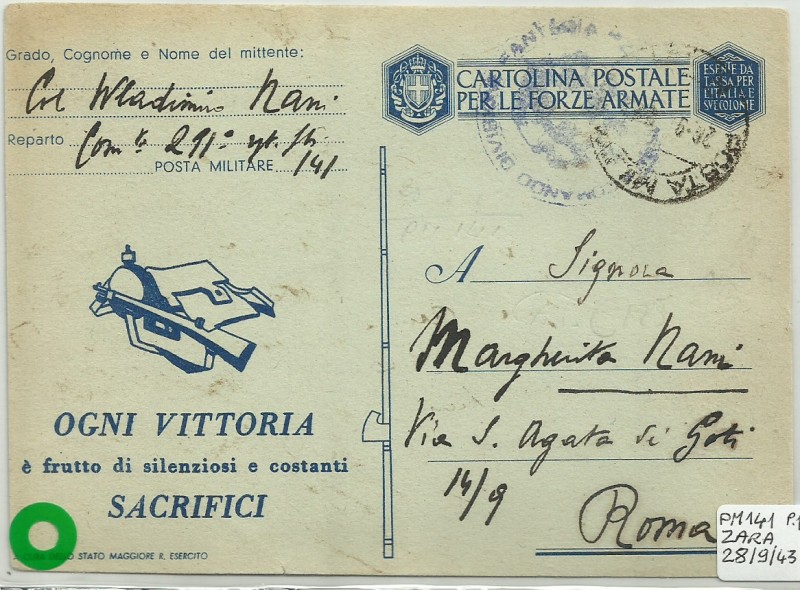 Grado, Cognome e Nome del mittente:
Col Wladimiro Nani
Reparto Com.te 291°
POSTA MILITARE 141
CARTOLINA POSTALE
PER LE FORZE ARMATE
ESENTE DA
TASSA PER
L'ITALIA E
SUE COLONIE
COMANDO DIVISIONE FANTERIA
POSTA MIL
A Signora
Margherita Nani
Via S. Agata di Goti
14/9
Roma
OGNI VITTORIA
è frutto di silenziosi e costanti
SACRIFICI
STATO MAGGIORE R. ESERCITO
PM141 P.1
ZARA
28/9/43